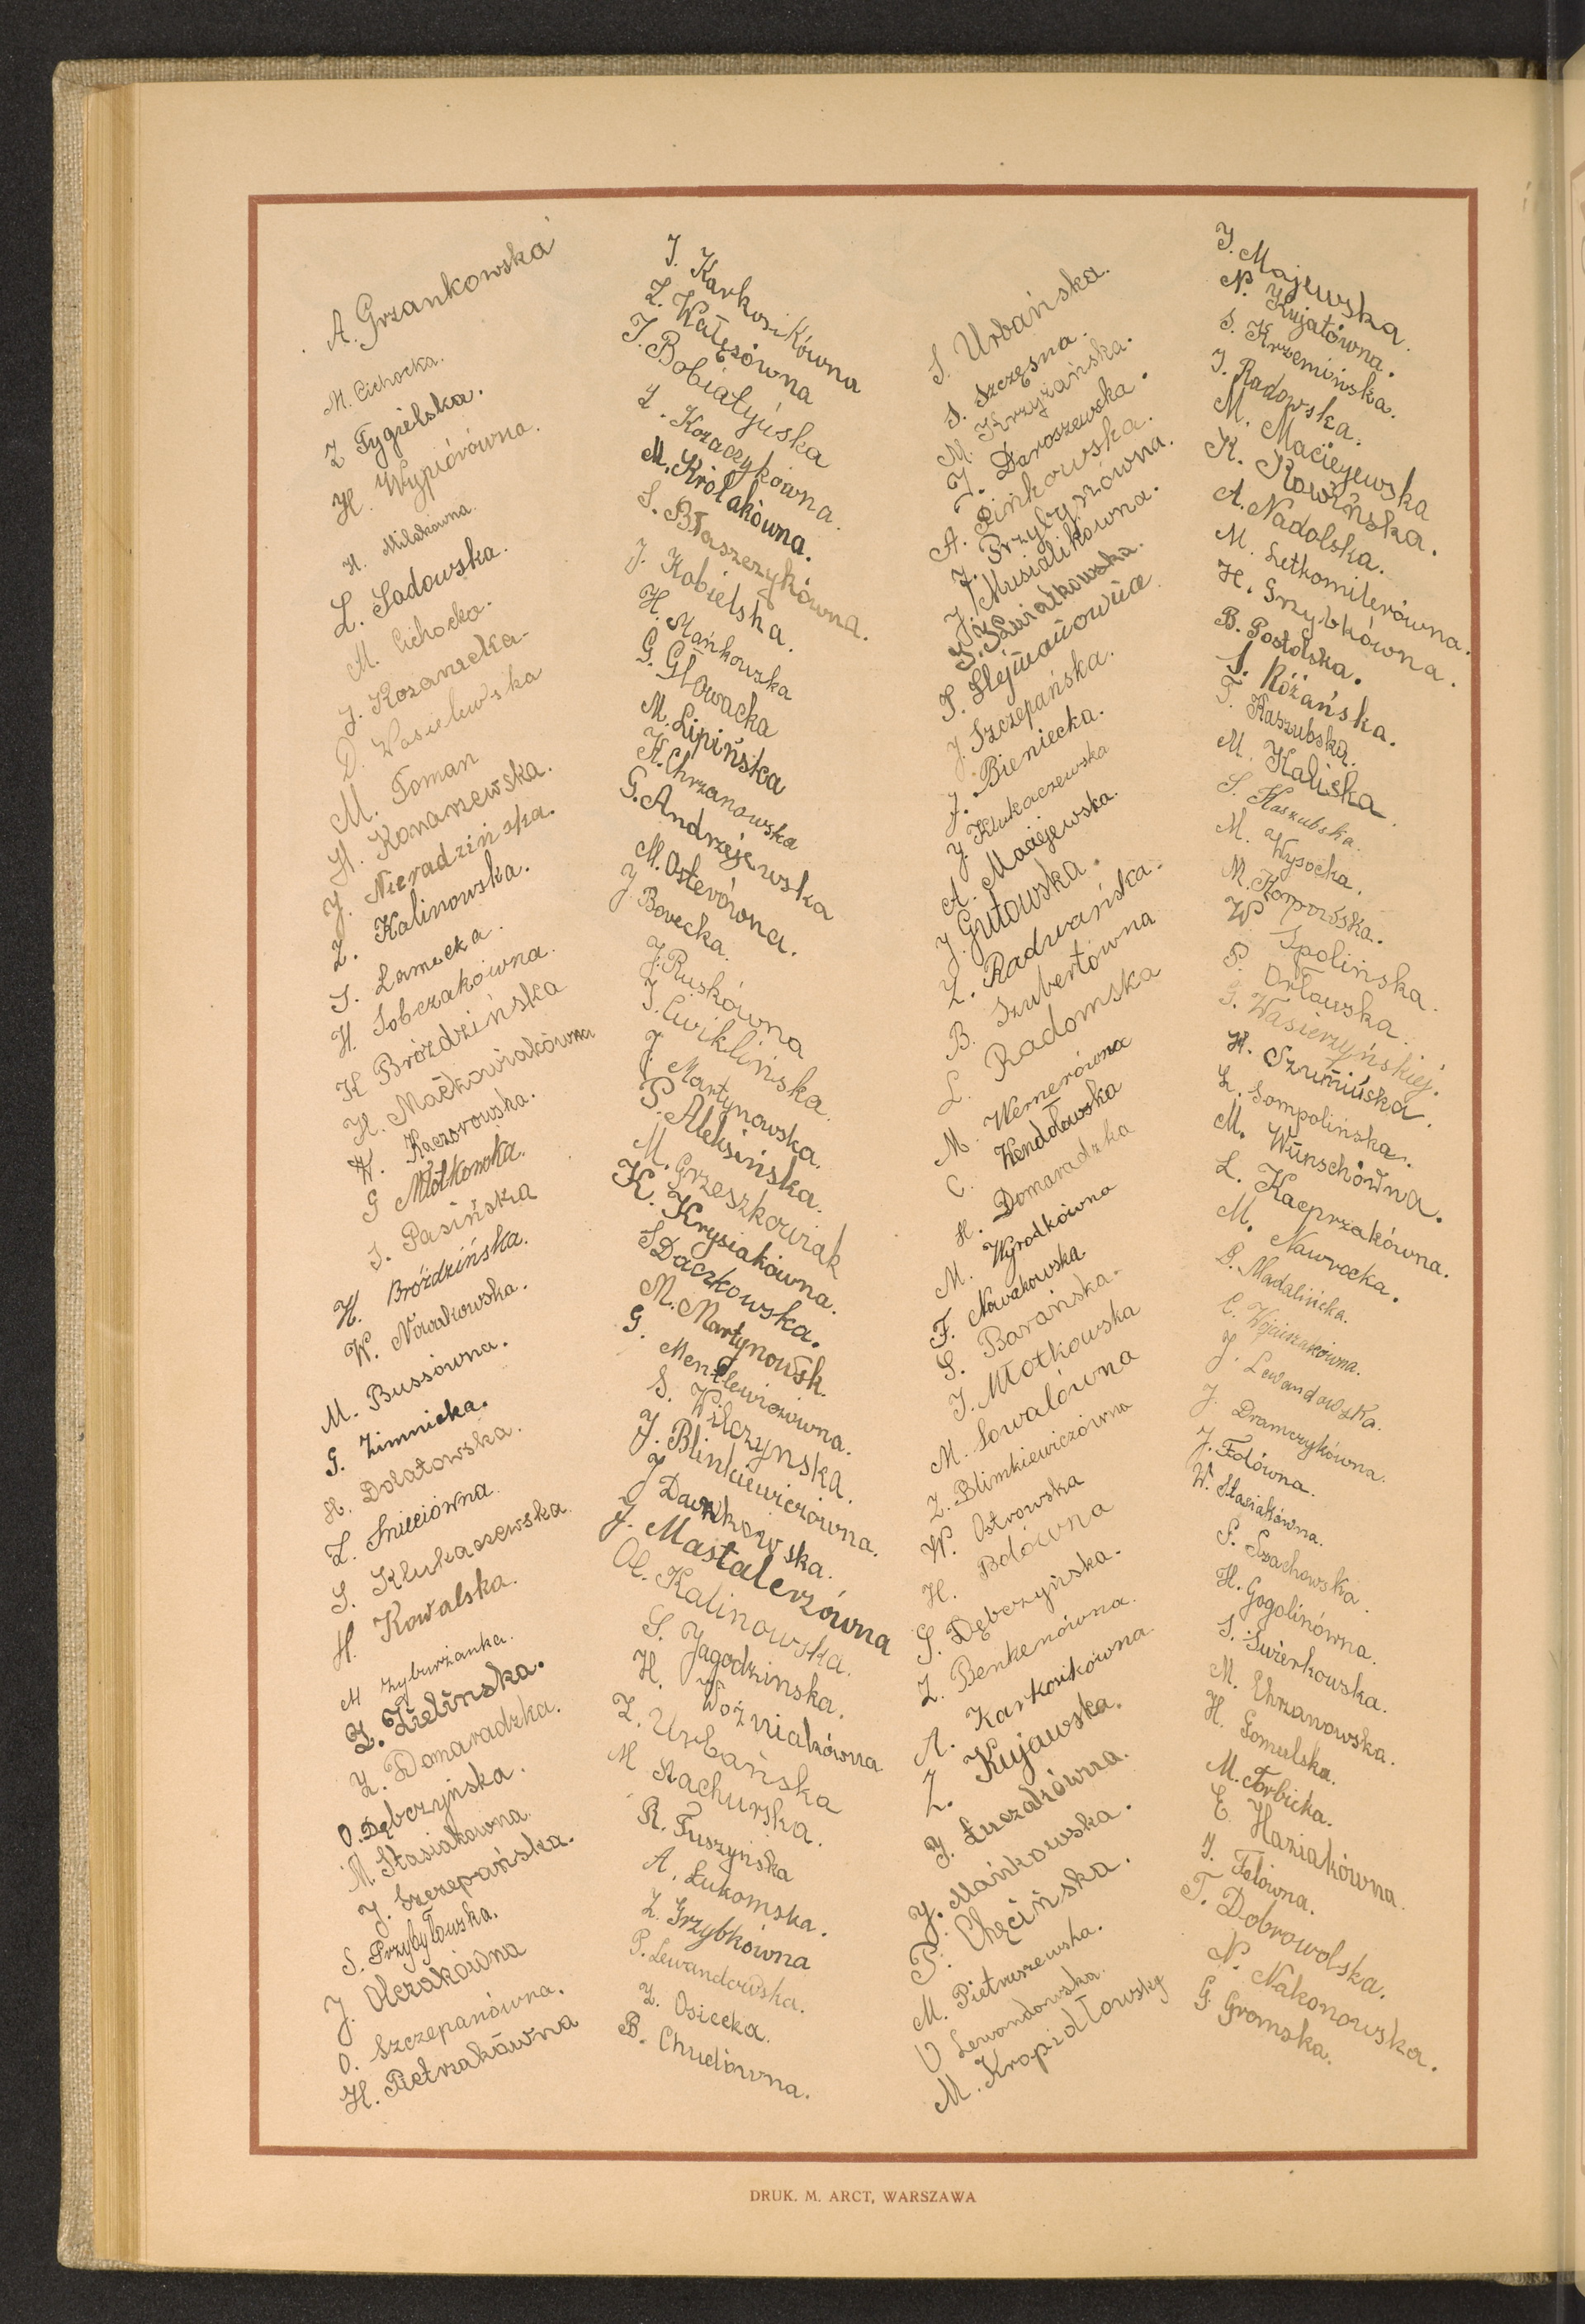 A. Grzankowska
M. Cichocka.
Z Tygielska.
H. Wypiórówna.
H. Milakówna.
L. Sadowska.
M. Cichocka.
J. Kozanecka.
D. Wasielewska
M. Toman
H. Konarzewska.
J. Nieradzińska.
Z. Kalinowska.
J. Larnecka.
H. Sobczakówna.
K Bróździńska
H. Maćkowiakówna
W. Kaczorowska.
G Młotkowska.
J. Pasińska
H. Bróździńska.
W. Nowakowska.
M. Bussówna.
G. Zimnicka.
H. Dolatowska.
L. Śnieciówna.
S. Klukaszewska.
H. Kowalska.
M Zyburżanka.
Z. Zielińska.
Z. Domaradzka.
O. Dębczyńska.
M. Stasiakówna.
J. Szczepańska.
S. Przybyłowska.
J. Olczakówna
O. Szczepanówna.
H. Pietrzakówna
J. Karkosikówna
Z. Wałęzówna
J. Bobiatyńska
Z. Kozaczykówna.
M. Królakówna.
S. Błaszczykówna.
J. Kobielska.
H. Mańkowska
G. Głowacka
M. Lipińska
K. Chrzanowska
G. Andrzejewska
M. Osterówna.
J. Borecka.
J. Ruskówna
J. Ćwiklińska.
J. Martynowska.
P. Aleksińska.
M. Grzeszkowiak
K. Krysiakówna.
S Daczkowska.
M. Martynowsk.
G. Mentlewiczówna.
S. Wilczynska.
J. Blinkiewiczówna.
J Dankowska.
J. Mastalerzówna
Ol. Kalinowska.
S. Jagodzinska.
H. Woźniakówna
Z. Urbańska
M Stachurska.
R. Tuszyńska
A. Łukomska.
Z. Grzybkówna
P. Lewandowska.
Z. Osiecka.
B. Chudówna.
S. Urbańska.
S. Szczęsna.
M. Krzyżańska.
J. Daroszewska.
A. Pinkowska.
J. Przybyszówna.
J. Musialikówna.
J. Kwiatkowska.
S. Stejmanowice
J. Szczepańska.
J. Bieniecka.
J. Klukaczewska
A. Maciejewska.
J. Gutowska.
Z. Radwańska.
B. Szubertówna
L. Radomska
M. Wernerówna
C. Wendołowska
H. Domaradzka
M. Wyrodkówna
F. Nowakowska
S. Barańska.
J. Młotkowska
M. Sowalówna
Z. Blimkiewiczówna
W. Ostrowska
H. Bdówna
S. Dębczyńska.
Z. Benkenówna.
A. Karkosikówna.
Z. Kujawska.
J. Łuczakówna.
J. Mańkowska.
P. Chęcińska.
M. Pietruszewska.
U Lewandowska.
M. Kropidłowsky
J. Majewska.
N. Kujatówna.
S. Krzemińska.
J. Radowska.
M. Maciejewska
K. Rawińska.
A. Nadolska.
M. Letkomilerówna.
H. Grzybkówna.
B. Podolska.
J. Różańska.
T. Kaszubska.
M. Kaliska.
S. Kaszubska.
M. Wysocka.
M. Komporska.
W Spolińska.
P. Orłowska.
G. Wasierzyńskiej.
H. Szumińska.
Z. Sompolińska.
M. Wünschówna.
L. Kacprzakówna.
M. Nawrocka.
B. Madalińska.
C. Wojcieszakówna.
J. Lewandowska.
J. Dramczykówna.
J. Fedówna.
W. Stasiakówna.
S. Szachowska.
H. Gogolinówna.
S. Świerkowska.
M. Chrzanowska.
H. Gomulska.
M. Torbicka.
E. Haziakówna.
J. Felówna.
T. Dobrowolska.
N. Nakonowska.
G. Gromska.
DRUK. M. ARCT, WARSZAWA